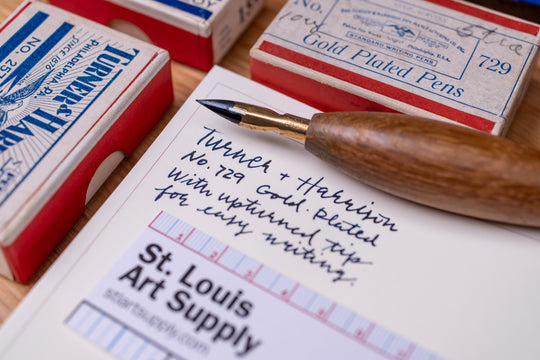 NO. 25
SINCE 1876
PHILADELPHIA, PA
TURNER & HARR
No.
729
STANDARD WRITING PENS
Gold Plated Pens
Turner + Harrison
No. 729 Gold. Plated
with upturned tip
for easy writing.
St. Louis
Art Supply
stlartsupply.com